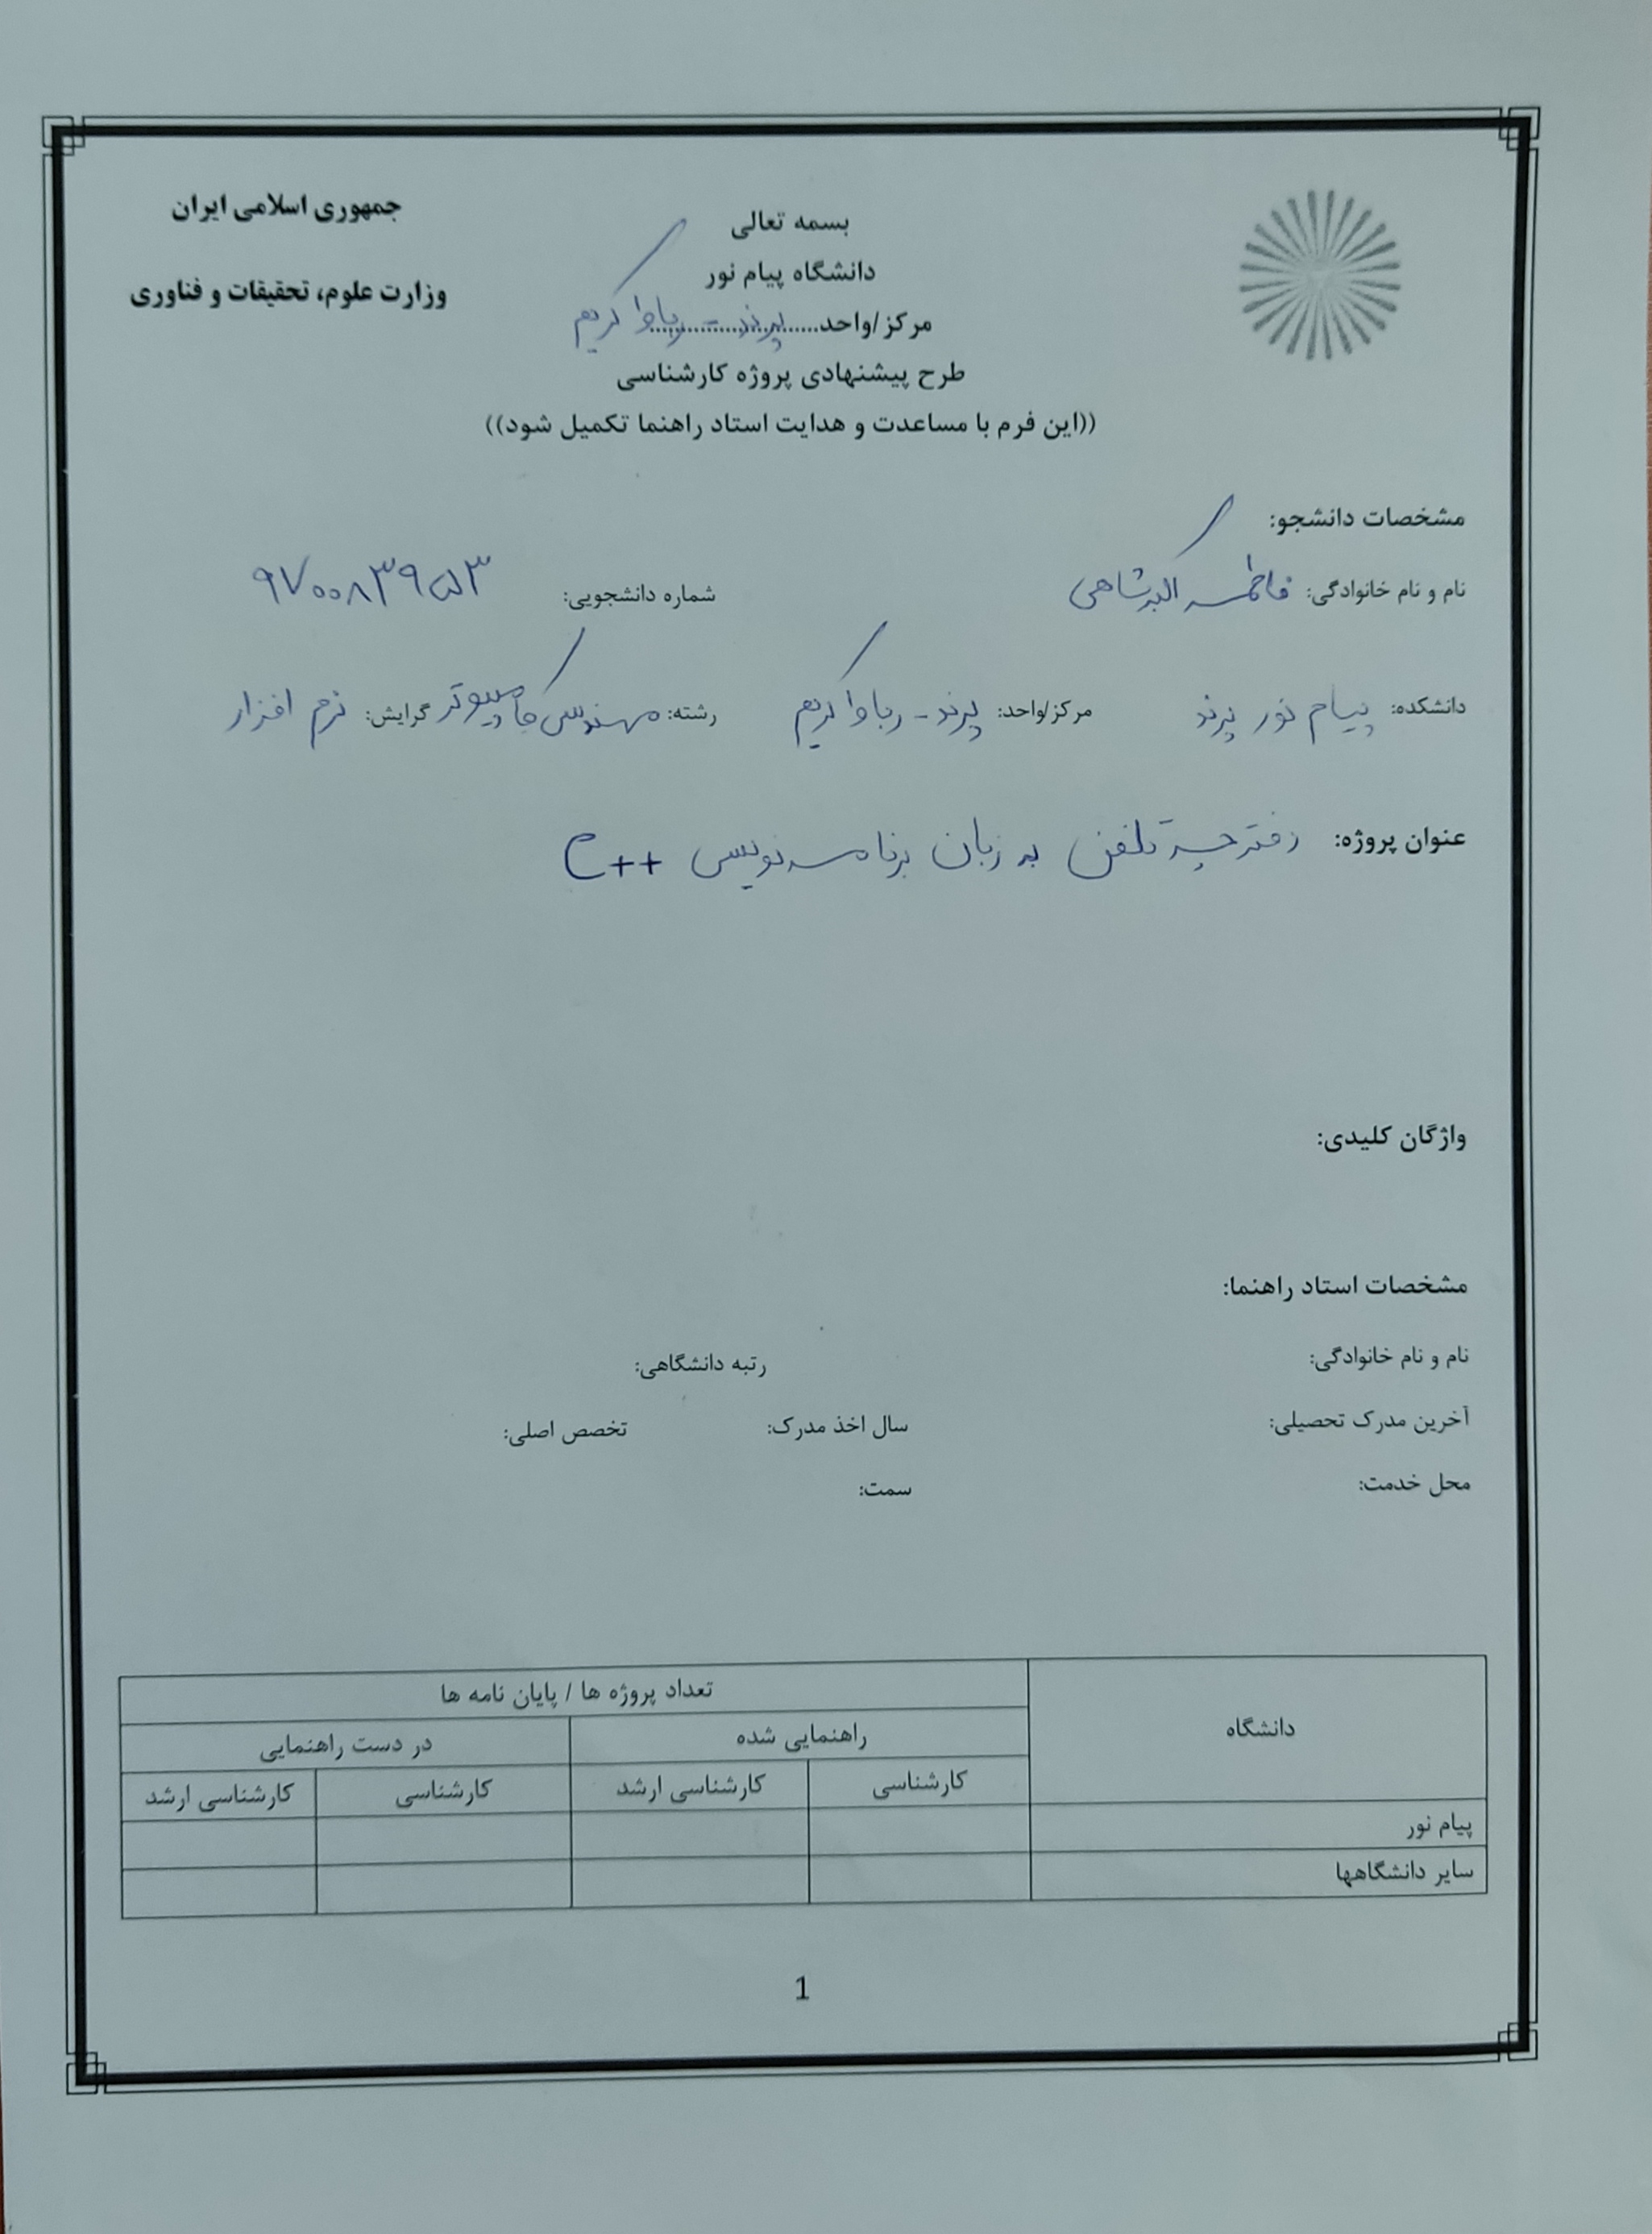 جمهوری اسلامی ایران
وزارت علوم، تحقیقات و فناوری
بسمه تعالی
دانشگاه پیام نور
مرکز/واحد......پرند - رباط کریم
طرح پیشنهادی پروژه کارشناسی
((این فرم با مساعدت و هدایت استاد راهنما تکمیل شود))
مشخصات دانشجو:
نام و نام خانوادگی: فاطمه اکبرشاهی شماره دانشجویی: ۹۷۰۰۸۳۹۵۳
دانشکده: پیام نور پرند مرکز/واحد: پرند - رباط کریم رشته: مهندسی کامپیوتر گرایش: نرم افزار
عنوان پروژه: دفترچه تلفن به زبان برنامه نویسی C++
واژگان کلیدی:
مشخصات استاد راهنما:
نام و نام خانوادگی: رتبه دانشگاهی:
آخرین مدرک تحصیلی: سال اخذ مدرک: تخصص اصلی:
محل خدمت: سمت:
دانشگاه تعداد پروژه ها / پایان نامه ها
راهنمایی شده در دست راهنمایی
کارشناسی کارشناسی ارشد کارشناسی کارشناسی ارشد
پیام نور
سایر دانشگاهها
1